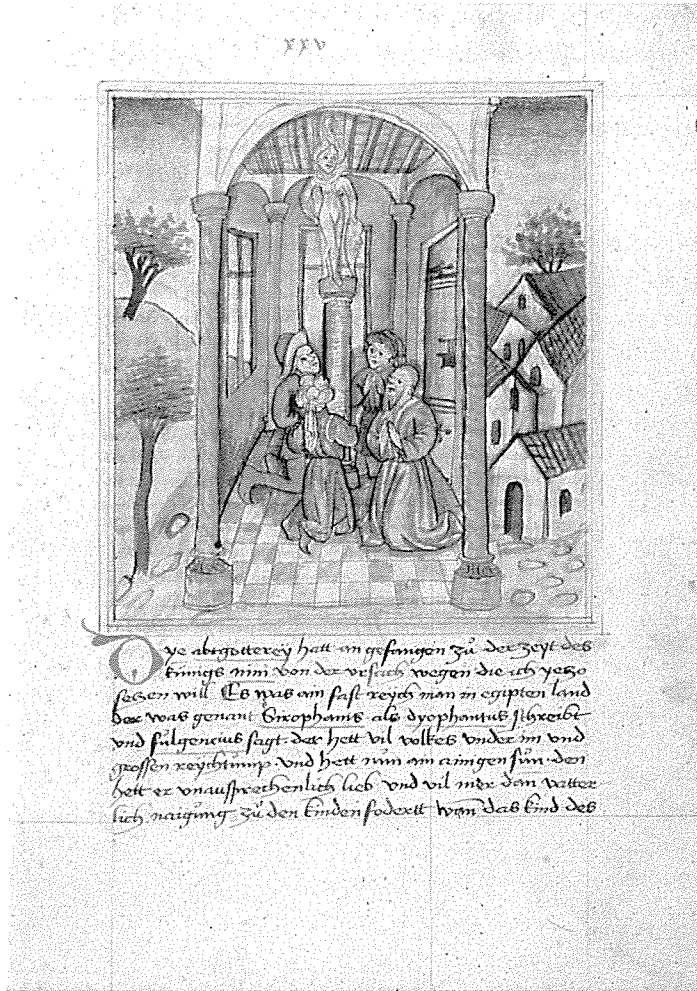 xxv
Dye abtgotterey hatt an gefangen zů der zeyt des
künigs nini von der vrsach wegen die ich yeczo
seczen will Es was ain fast reych man in egipten land
der was genant Sirophanis als dyophantus schreibt
vnd fulgencius sagt. der hett vil volkes vnder im vnd
grossen reychtump. vnd hett nun ain ainigen sun. den
hett er vnaussprechenlich lieb vnd vil mer dan vatter
lich naigung zů den kinden fodertt wan das kind des